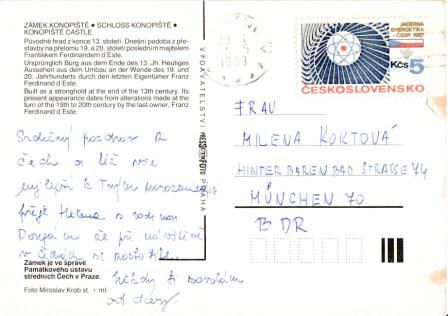 ZÁMEK KONOPIŠTĚ • SCHLOSS KONOPIŠTĚ •
KONOPIŠTĚ CASTLE
Původně hrad z konce 13. století. Dnešní podoba z pře-
stavby na přelomu 19. a 20. století posledním majitelem
Františkem Ferdinandem d'Este.
Ursprünglich Burg aus dem Ende des 13. Jh. Heutiges
Aussehen aus dem Umbau an der Wende des 19. und
20. Jahrhunderts durch den letzten Eigentümer Franz
Ferdinand d'Este.
Built as a stronghold at the end of the 13th century. Its
present appearance dates from alterations made at the
turn of the 19th to 20th century by the last owner, Franz
Ferdinand d'Este.
Srdečný pozdrav z
Čech a též vše
nejlepší k Tvým narozeninám
přeje Helena s rodinou
Doufám že při návštěvě
v Čechách si
Někdy ti zavolám
Zámek je ve správě
Památkového ústavu
středních Čech v Praze.
Foto Miroslav Krob st. + ml.
VYDAVATELSTVÍ PRESSFOTO PRAHA
1993
JADERNÁ
ENERGETIKA
ČSSR 1987
Kčs 5
ČESKOSLOVENSKO
FRAU
MILENA KOKTOVÁ
HINTERBARENBAD STRASSE 74
MÜNCHEN 70
BDR